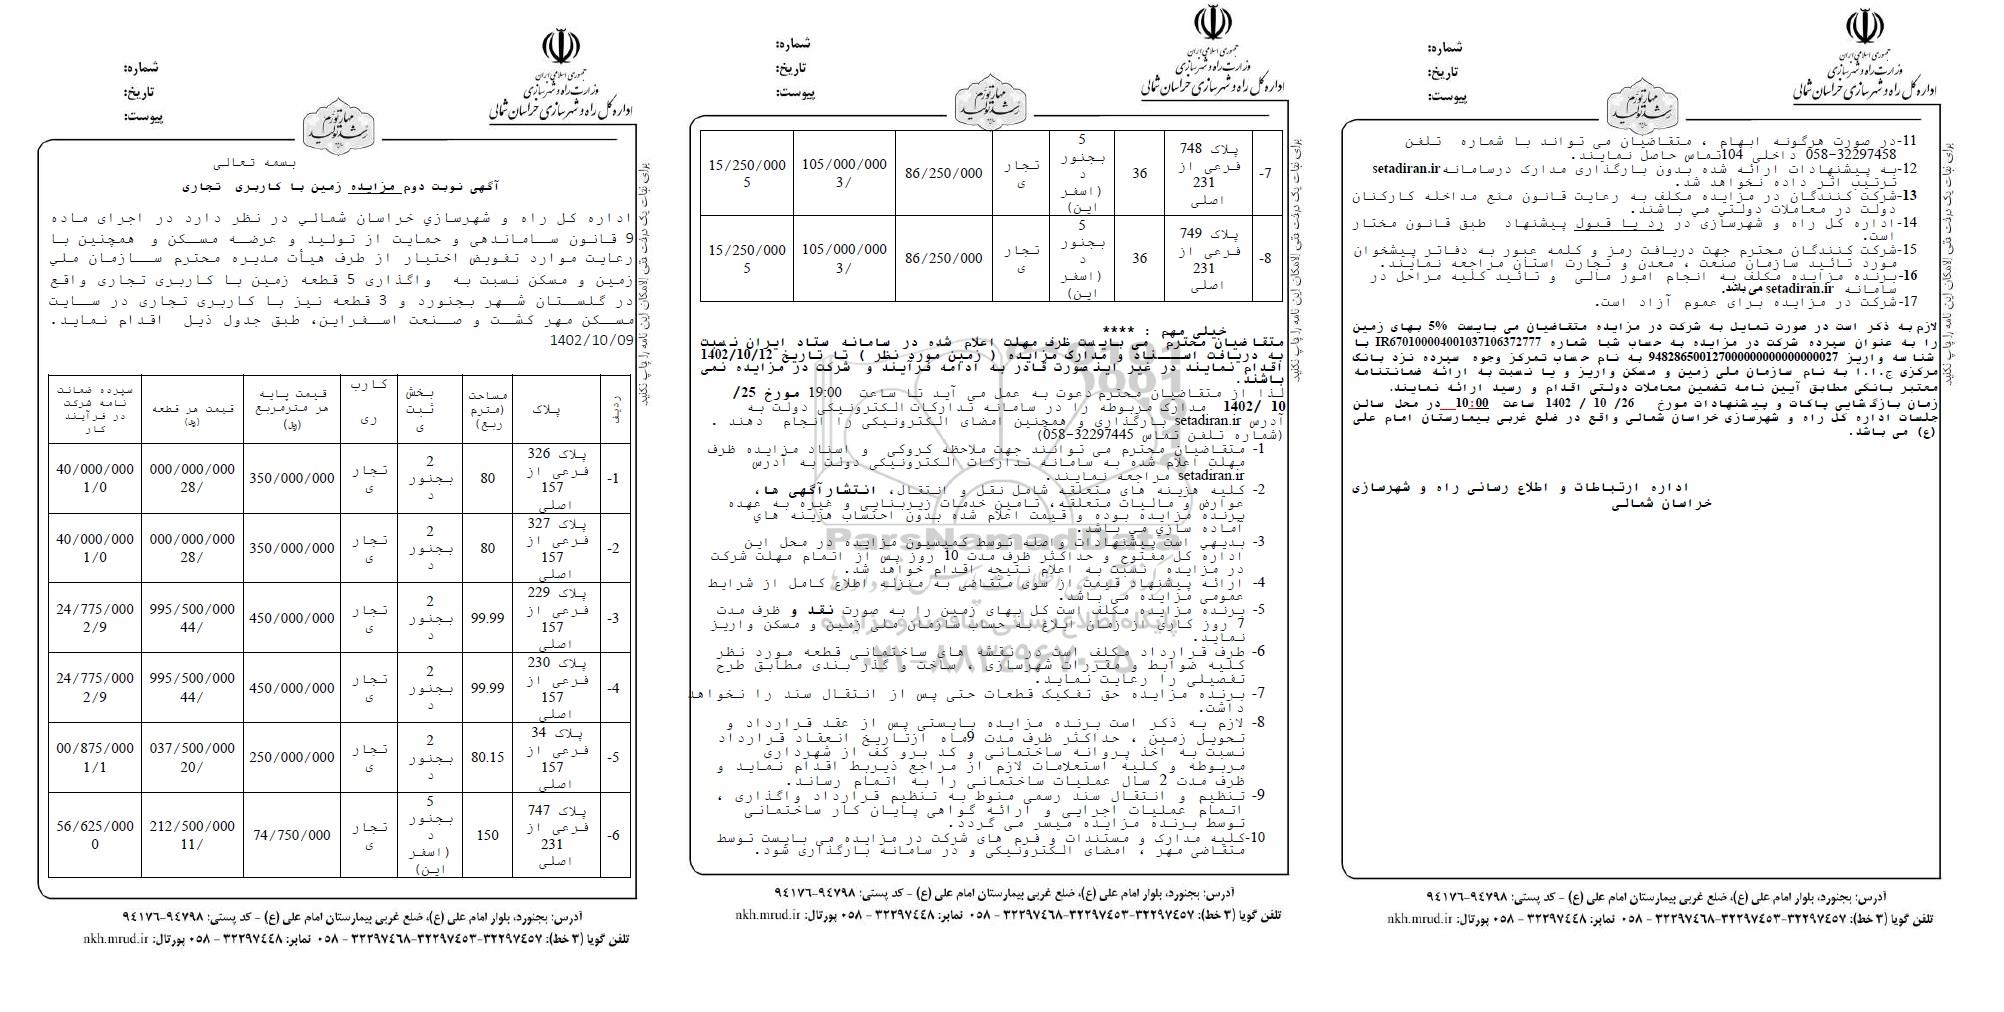 جمهوری اسلامی ایران
وزارت راه و شهرسازی
اداره کل راه و شهرسازی خراسان شمالی
شماره:
تاریخ:
پیوست:
مهار تورم
رشد تولید
برای نجات یک درخت حتی الامکان این نامه را چاپ نکنید
بسمه تعالی
آگهی نوبت دوم مزایده زمین با کاربری تجاری
اداره کل راه و شهرسازي خراسان شمالي در نظر دارد در اجرای ماده
9 قانون ساماندهی و حمایت از تولید و عرضه مسکن و همچنین با
رعایت موارد تفویض اختیار از طرف هیأت مدیره محترم سازمان ملي
زمین و مسکن نسبت به واگذاری 5 قطعه زمین با کاربری تجاری واقع
در گلستان شهر بجنورد و 3 قطعه نیز با کاربری تجاری در سایت
مسکن مهر کشت و صنعت اسفراین، طبق جدول ذیل اقدام نماید.
1402/10/09
ردیف | پلاک | مساحت (مترمربع) | بخش ثبتی | کاربری | قیمت پایه هر مترمربع (ریال) | قیمت هر قطعه (ریال) | سپرده ضمانت نامه شرکت در فرآیند کار
1- | پلاک 326 فرعی از 157 اصلی | 80 | 2 بجنورد | تجاری | 350/000/000 | 000/000/000 28/ | 40/000/000 1/0
2- | پلاک 327 فرعی از 157 اصلی | 80 | 2 بجنورد | تجاری | 350/000/000 | 000/000/000 28/ | 40/000/000 1/0
3- | پلاک 229 فرعی از 157 اصلی | 99.99 | 2 بجنورد | تجاری | 450/000/000 | 995/500/000 44/ | 24/775/000 2/9
4- | پلاک 230 فرعی از 157 اصلی | 99.99 | 2 بجنورد | تجاری | 450/000/000 | 995/500/000 44/ | 24/775/000 2/9
5- | پلاک 34 فرعی از 157 اصلی | 80.15 | 2 بجنورد | تجاری | 250/000/000 | 037/500/000 20/ | 00/875/000 1/1
6- | پلاک 747 فرعی از 231 اصلی | 150 | 5 بجنورد (اسفراین) | تجاری | 74/750/000 | 212/500/000 11/ | 56/625/000 0
آدرس: بجنورد، بلوار امام علی (ع)، ضلع غربی بیمارستان امام علی (ع) - کد پستی: ٩٤٧٩٨-٩٤١٧٦
تلفن گویا (٣ خط): ٣٢٢٩٧٤٥٧-٣٢٢٩٧٤٥٣-٣٢٢٩٧٤٦٨ - ٠٥٨ نمابر: ٣٢٢٩٧٤٤٨ - ٠٥٨ پورتال: nkh.mrud.ir
جمهوری اسلامی ایران
وزارت راه و شهرسازی
اداره کل راه و شهرسازی خراسان شمالی
شماره:
تاریخ:
پیوست:
مهار تورم
رشد تولید
برای نجات یک درخت حتی الامکان این نامه را چاپ نکنید
7- | پلاک 748 فرعی از 231 اصلی | 36 | 5 بجنورد (اسفراین) | تجاری | 86/250/000 | 105/000/000 3/ | 15/250/000 5
8- | پلاک 749 فرعی از 231 اصلی | 36 | 5 بجنورد (اسفراین) | تجاری | 86/250/000 | 105/000/000 3/ | 15/250/000 5
خیلی مهم : ****
متقاضیان محترم می بایست ظرف مهلت اعلام شده در سامانه ستاد ایران نسبت
به دریافت اسناد و مدارک مزایده ( زمین مورد نظر ) تا تاریخ 1402/10/12
اقدام نمایند در غیر اینصورت قادر به ادامه فرآیند و شرکت در مزایده نمی
باشند.
لذا از متقاضیان محترم دعوت به عمل می آید تا ساعت 19:00 مورخ 25/
10 /1402 مدارک مربوطه را در سامانه تدارکات الکترونیکی دولت به
آدرس setadiran.ir بارگذاری و همچنین امضای الکترونیکی را انجام دهند .
(شماره تلفن تماس 32297445-058)
1- متقاضیان محترم می توانند جهت ملاحظه کروکی و اسناد مزایده ظرف
مهلت اعلام شده به سامانه تدارکات الکترونیکی دولت به آدرس
setadiran.ir مراجعه نمایند.
2- کلیه هزینه های متعلقه شامل نقل و انتقال، انتشارآگهی ها،
عوارض و مالیات متعلقه، تامین خدمات زیربنایی و غیره به عهده
برنده مزایده بوده و قیمت اعلام شده بدون احتساب هزینه هاي
آماده سازي می باشد.
3- بدیهی است پیشنهادات واصله توسط کمیسیون مزایده در محل این
اداره کل مفتوح و حداکثر ظرف مدت 10 روز پس از اتمام مهلت شرکت
در مزایده نسبت به اعلام نتیجه اقدام خواهد شد.
4- ارائه پیشنهاد قیمت از سوی متقاضی به منزله اطلاع کامل از شرایط
عمومی مزایده می باشد.
5- برنده مزایده مکلف است کل بهای زمین را به صورت نقد و ظرف مدت
7 روز کاری از زمان ابلاغ به حساب سازمان ملی زمین و مسکن واریز
نماید.
6- طرف قرارداد مکلف است در نقشه های ساختمانی قطعه مورد نظر
کلیه ضوابط و مقررات شهرسازی ، ساخت و گذر بندی مطابق طرح
تفصیلی را رعایت نماید.
7- برنده مزایده حق تفکیک قطعات حتی پس از انتقال سند را نخواهد
داشت.
8- لازم به ذکر است برنده مزایده بایستی پس از عقد قرارداد و
تحویل زمین ، حداکثر ظرف مدت 9ماه ازتاریخ انعقاد قرارداد
نسبت به اخذ پروانه ساختمانی و کد برو کف از شهرداری
مربوطه و کلیه استعلامات لازم از مراجع ذیربط اقدام نماید و
ظرف مدت 2 سال عملیات ساختمانی را به اتمام رساند.
9- تنظیم و انتقال سند رسمی منوط به تنظیم قرارداد واگذاری ،
اتمام عملیات اجرایی و ارائه گواهی پایان کار ساختمانی
توسط برنده مزایده میسر می گردد.
10-کلیه مدارک و مستندات و فرم های شرکت در مزایده می بایست توسط
متقاضی مهر ، امضای الکترونیکی و در سامانه بارگذاری شود.
ParsNamadData
پایگاه اطلاع رسانی مناقصه و مزایده
۰۲۱-۸۸۳۴۹۶۷۰-۵
آدرس: بجنورد، بلوار امام علی (ع)، ضلع غربی بیمارستان امام علی (ع) - کد پستی: ٩٤٧٩٨-٩٤١٧٦
تلفن گویا (٣ خط): ٣٢٢٩٧٤٥٧-٣٢٢٩٧٤٥٣-٣٢٢٩٧٤٦٨ - ٠٥٨ نمابر: ٣٢٢٩٧٤٤٨ - ٠٥٨ پورتال: nkh.mrud.ir
جمهوری اسلامی ایران
وزارت راه و شهرسازی
اداره کل راه و شهرسازی خراسان شمالی
شماره:
تاریخ:
پیوست:
مهار تورم
رشد تولید
برای نجات یک درخت حتی الامکان این نامه را چاپ نکنید
11-در صورت هرگونه ابهام ، متقاضیان می تواند با شماره تلفن
32297458-058 داخلی 104تماس حاصل نمایند.
12-به پیشنهادات ارائه شده بدون بارگذاری مدارک درسامانه setadiran.ir
ترتیب اثر داده نخواهد شد.
13-شرکت کنندگان در مزایده مکلف به رعایت قانون منع مداخله کارکنان
دولت در معاملات دولتي مي باشند.
14-اداره کل راه و شهرسازی در رد یا قبول پیشنهاد طبق قانون مختار
است.
15-شرکت کنندگان محترم جهت دریافت رمز و کلمه عبور به دفاتر پیشخوان
مورد تائید سازمان صنعت ، معدن و تجارت استان مراجعه نمایند.
16-برنده مزایده مکلف به انجام امور مالی و تائید کلیه مراحل در
سامانه setadiran.ir می باشد.
17-شرکت در مزایده برای عموم آزاد است.
لازم به ذکر است در صورت تمایل به شرکت در مزایده متقاضیان می بایست 5% بهای زمین
را به عنوان سپرده شرکت در مزایده به حساب شبا شماره IR670100004001037106372777 با
شناسه واریز 948286500127000000000000000027 به نام حساب تمرکز وجوه سپرده نزد بانک
مرکزی ج.ا.ا به نام سازمان ملی زمین و مسکن واریز و یا نسبت به ارائه ضمانتنامه
معتبر بانکی مطابق آیین نامه تضمین معاملات دولتی اقدام و رسید ارائه نمایند.
زمان بازگشایی پاکات و پیشنهادات مورخ 26/ 10 / 1402 ساعت 10:00 در محل سالن
جلسات اداره کل راه و شهرسازی خراسان شمالی واقع در ضلع غربی بیمارستان امام علی
(ع) می باشد.
اداره ارتباطات و اطلاع رسانی راه و شهرسازی
خراسان شمالی
آدرس: بجنورد، بلوار امام علی (ع)، ضلع غربی بیمارستان امام علی (ع) - کد پستی: ٩٤٧٩٨-٩٤١٧٦
تلفن گویا (٣ خط): ٣٢٢٩٧٤٥٧-٣٢٢٩٧٤٥٣-٣٢٢٩٧٤٦٨ - ٠٥٨ نمابر: ٣٢٢٩٧٤٤٨ - ٠٥٨ پورتال: nkh.mrud.ir